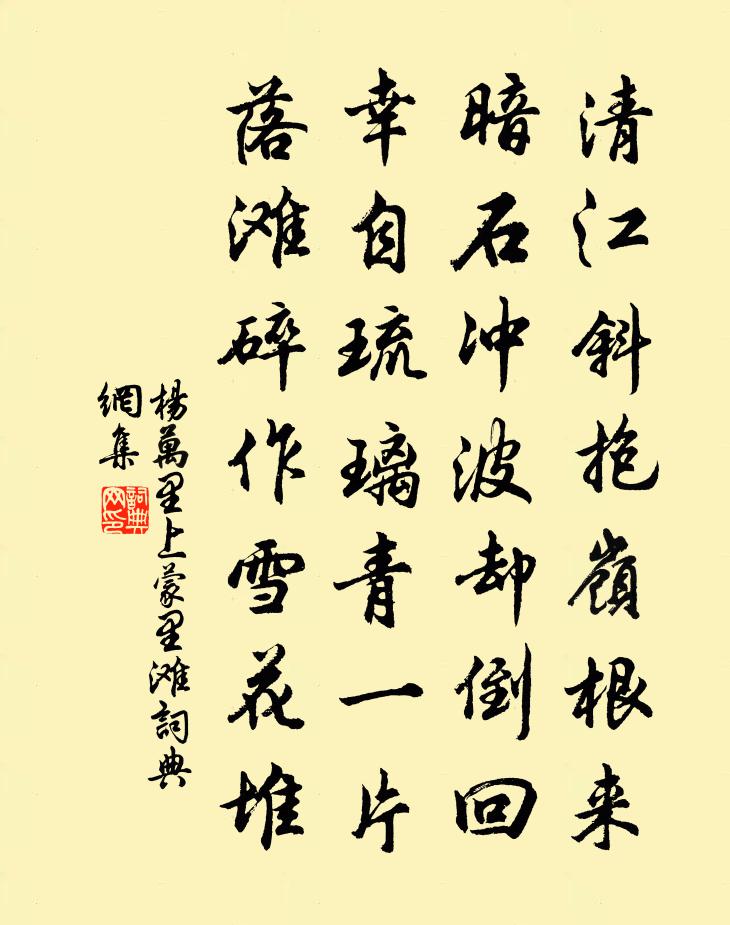 清江斜抱嶺根来
暗石冲波却倒回
幸自琉璃青一片
落滩碎作雪花堆
楊萬里上蒙里滩詞典
網集
詞典
网印